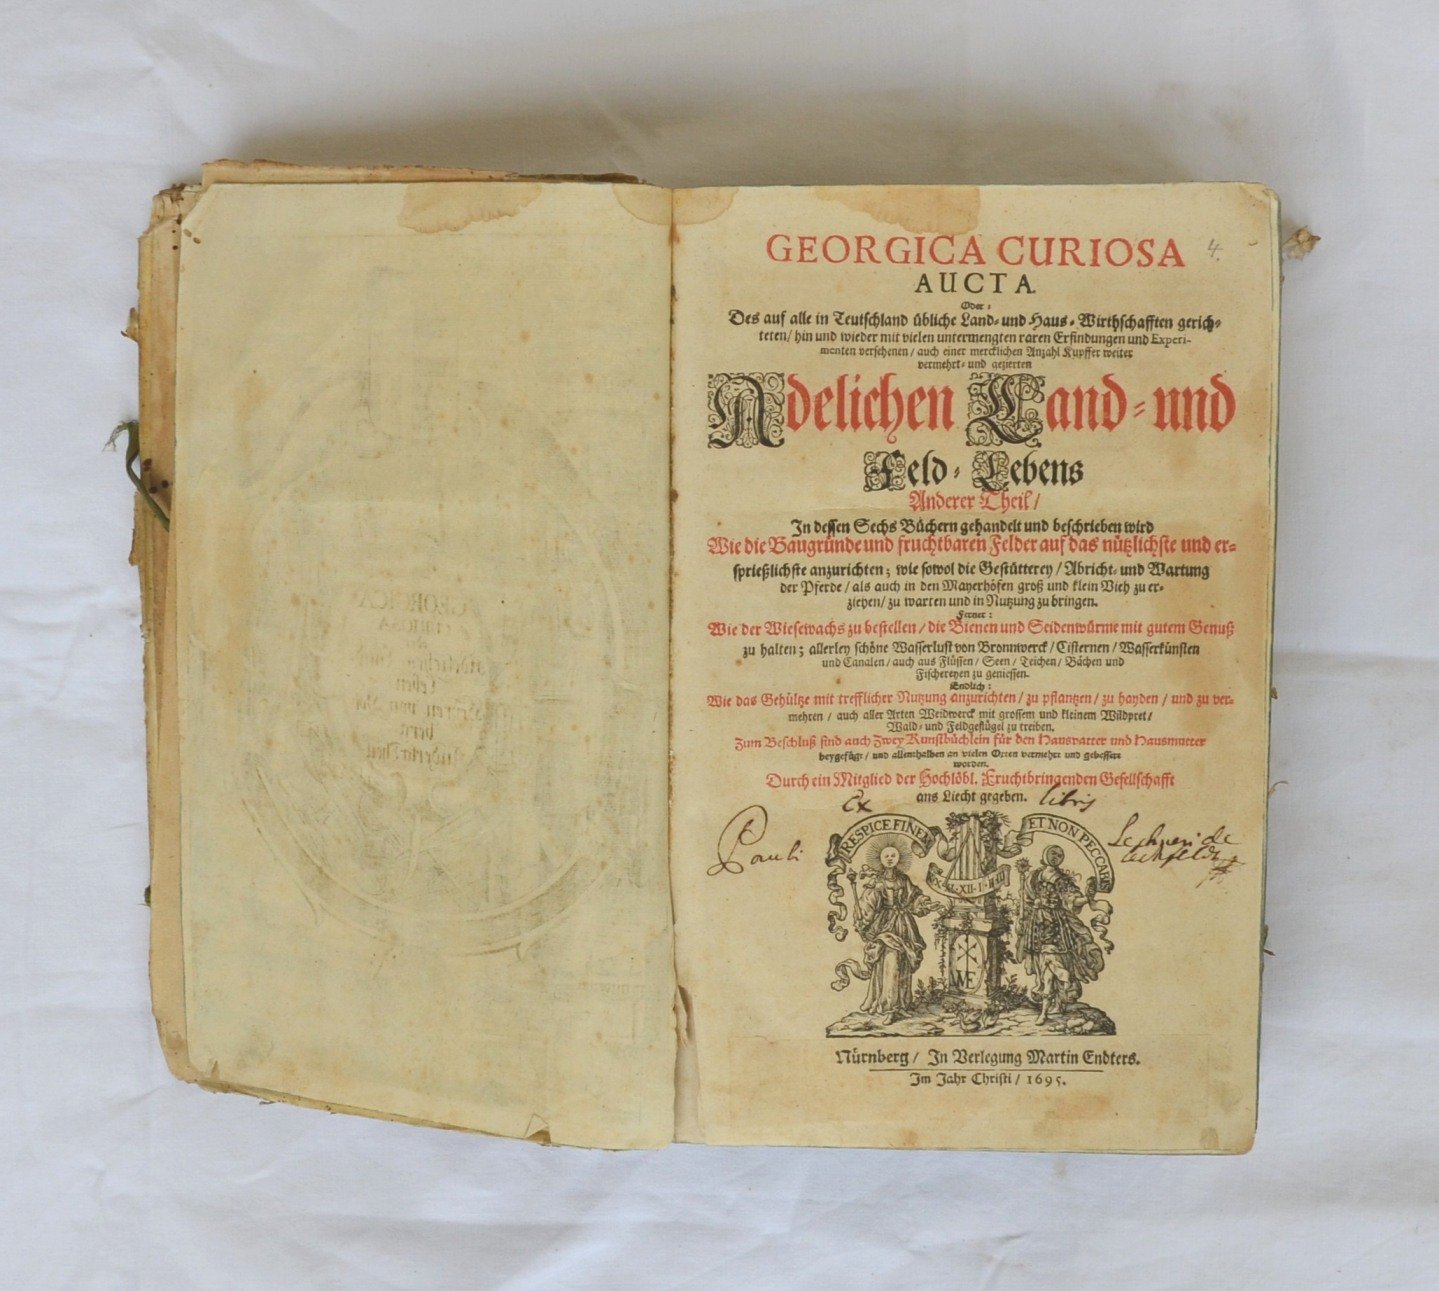 GEORGICA CURIOSA
4.
AUCTA.
Oder:
Des auf alle in Teutschland übliche Land- und Haus-Wirthschafften gerich-
teten / hin und wieder mit vielen untermengten raren Erfindungen und Experi-
menten versehenen / auch einer mercklichen Anzahl Kupffer weiter
vermehrt- und gezierten
Adelichen Land- und
Feld-Lebens
Anderer Theil /
In dessen Sechs Büchern gehandelt und beschrieben wird
Wie die Baugründe und fruchtbaren Felder auf das nützlichste und er-
sprießlichste anzurichten; wie sowol die Gestütterey / Abricht- und Wartung
der Pferde / als auch in den Mayerhöfen groß und klein Vieh zu er-
ziehen / zu warten und in Nutzung zu bringen.
Ferner:
Wie der Wiesewachs zu bestellen / die Bienen und Seidenwürme mit gutem Genuß
zu halten; allerley schöne Wasserlust von Bronnwerck / Cisternen / Wasserkünsten
und Canalen / auch aus Flüssen / Seen / Teichen / Bächen und
Fischereyen zu geniessen.
Endlich:
Wie das Gehültze mit trefflicher Nutzung anzurichten / zu pflantzen / zu hayden / und zu ver-
mehren / auch aller Arten Weidwerck mit grossem und kleinem Wildpret /
Wald- und Feldgeflügel zu treiben.
Zum Beschluß sind auch Zwey Kunstbüchlein für den Hausvatter und Hausmutter
beygefügt / und allenthalben an vielen Orten vermehrt und gebessert
worden.
Durch ein Mitglied der Hochlöbl. Fruchtbringenden Gesellschafft
ans Liecht gegeben.
Ex libris
Pauli
RESPICE FINEM
ET NON PECCABIS
WE
Nürnberg / In Verlegung Martin Endters.
Im Jahr Christi / 1695.
GEORGICA
CURIOSA